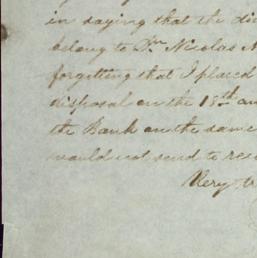 in saying that the di
belong to Dr. Nicolas
forgetting that I placed
disposal on the 15th an
the Bank on the same
would not send to rec
Very tr